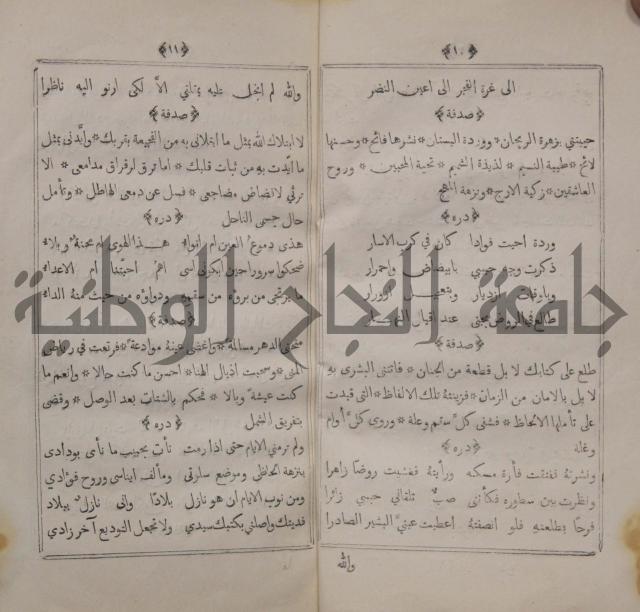 ﴿١٠﴾
الى غرة الفجر الى اعين النضر
﴿صدفة﴾
حييتني بزهرة الريحان * ووردة البستان * نشرها فائح * وحسنها
لائح * طيبة النسيم * لذيذة الشميم * تحية المحبين * وروح
العاشقين * زكية الارج * ونزهة المهج
﴿دره﴾
وردة احيت فوادا كان في كرب الاسار
ذكرت وجه حبيبي بابيضاض واحمرار
وباوقات ازديار
طالع في الروض يجنى عند اقبال النهار
﴿صدفة﴾
طلع على كتابك لا بل قطعة من الجنان * فاتتني البشرى به
لا بل بالامان من الزمان * فزينته تلك الالفاظ * التي قيدت
على تأملها الالحاظ * فشفى كل سقم وعلة * وروى كل أوام
وغلة
﴿دره﴾
ونشرته ففتقت فأرة مسكه ورأيته فغشيت روضا زاهرا
ونظرت بين سطوره فكأنني صب تلقاني حبيبي زائرا
فرحا بطلعته فلو انصفته اعطيت عيني البشير الصادرا
والله
﴿١١﴾
والله لم ابخل عليه بمقلتي الا لكى ارنو اليه ناظرا
﴿صدفة﴾
لا ابتلاك الله بمثل ما ابتلاني به من الفجيعة بقربك * وايدني بمثل
ما ايدت به من ثبات قلبك * اما ترق لرقراق مدامعي * الا
ترثي لانقضاض مضاجعي * فسل عن دمعي الهاطل * وتأمل
حال جسمى الناحل
﴿دره﴾
هذى دموع العين ام انواء هذا الهوى ام محنة وبلاء
ضحكوا سرورا حين ابكوني اسى اهم احبتنا ام الاعداء
ما يرتجى من برؤه من سقمه ودواؤه من حيث منه الداء
﴿صدفة﴾
منحني الدهر مسالمة * واغضى عينه موادعة * فرتعت في رياض
المنى * وسحبت اذيال الهنا * احسن ما كنت حالا * وانعم ما
كنت عيشة وبالا * فتحكم بالشتات بعد الوصل * وقضى
بتفريق الشمل
﴿دره﴾
ولم ترمني الايام حتى اذا رمت نأت بحبيب ما نأى بودادى
بنزهة الحاظي وموضع سارتي ومألف ايناسي وروح فؤادي
ومن نوب الايام ان هو نازل بلادا واني نازل ببلاد
فديتك واصلني بكتبك سيدي ولا تجعل التوديع آخر زادي
جامعة النجاح الوطنية